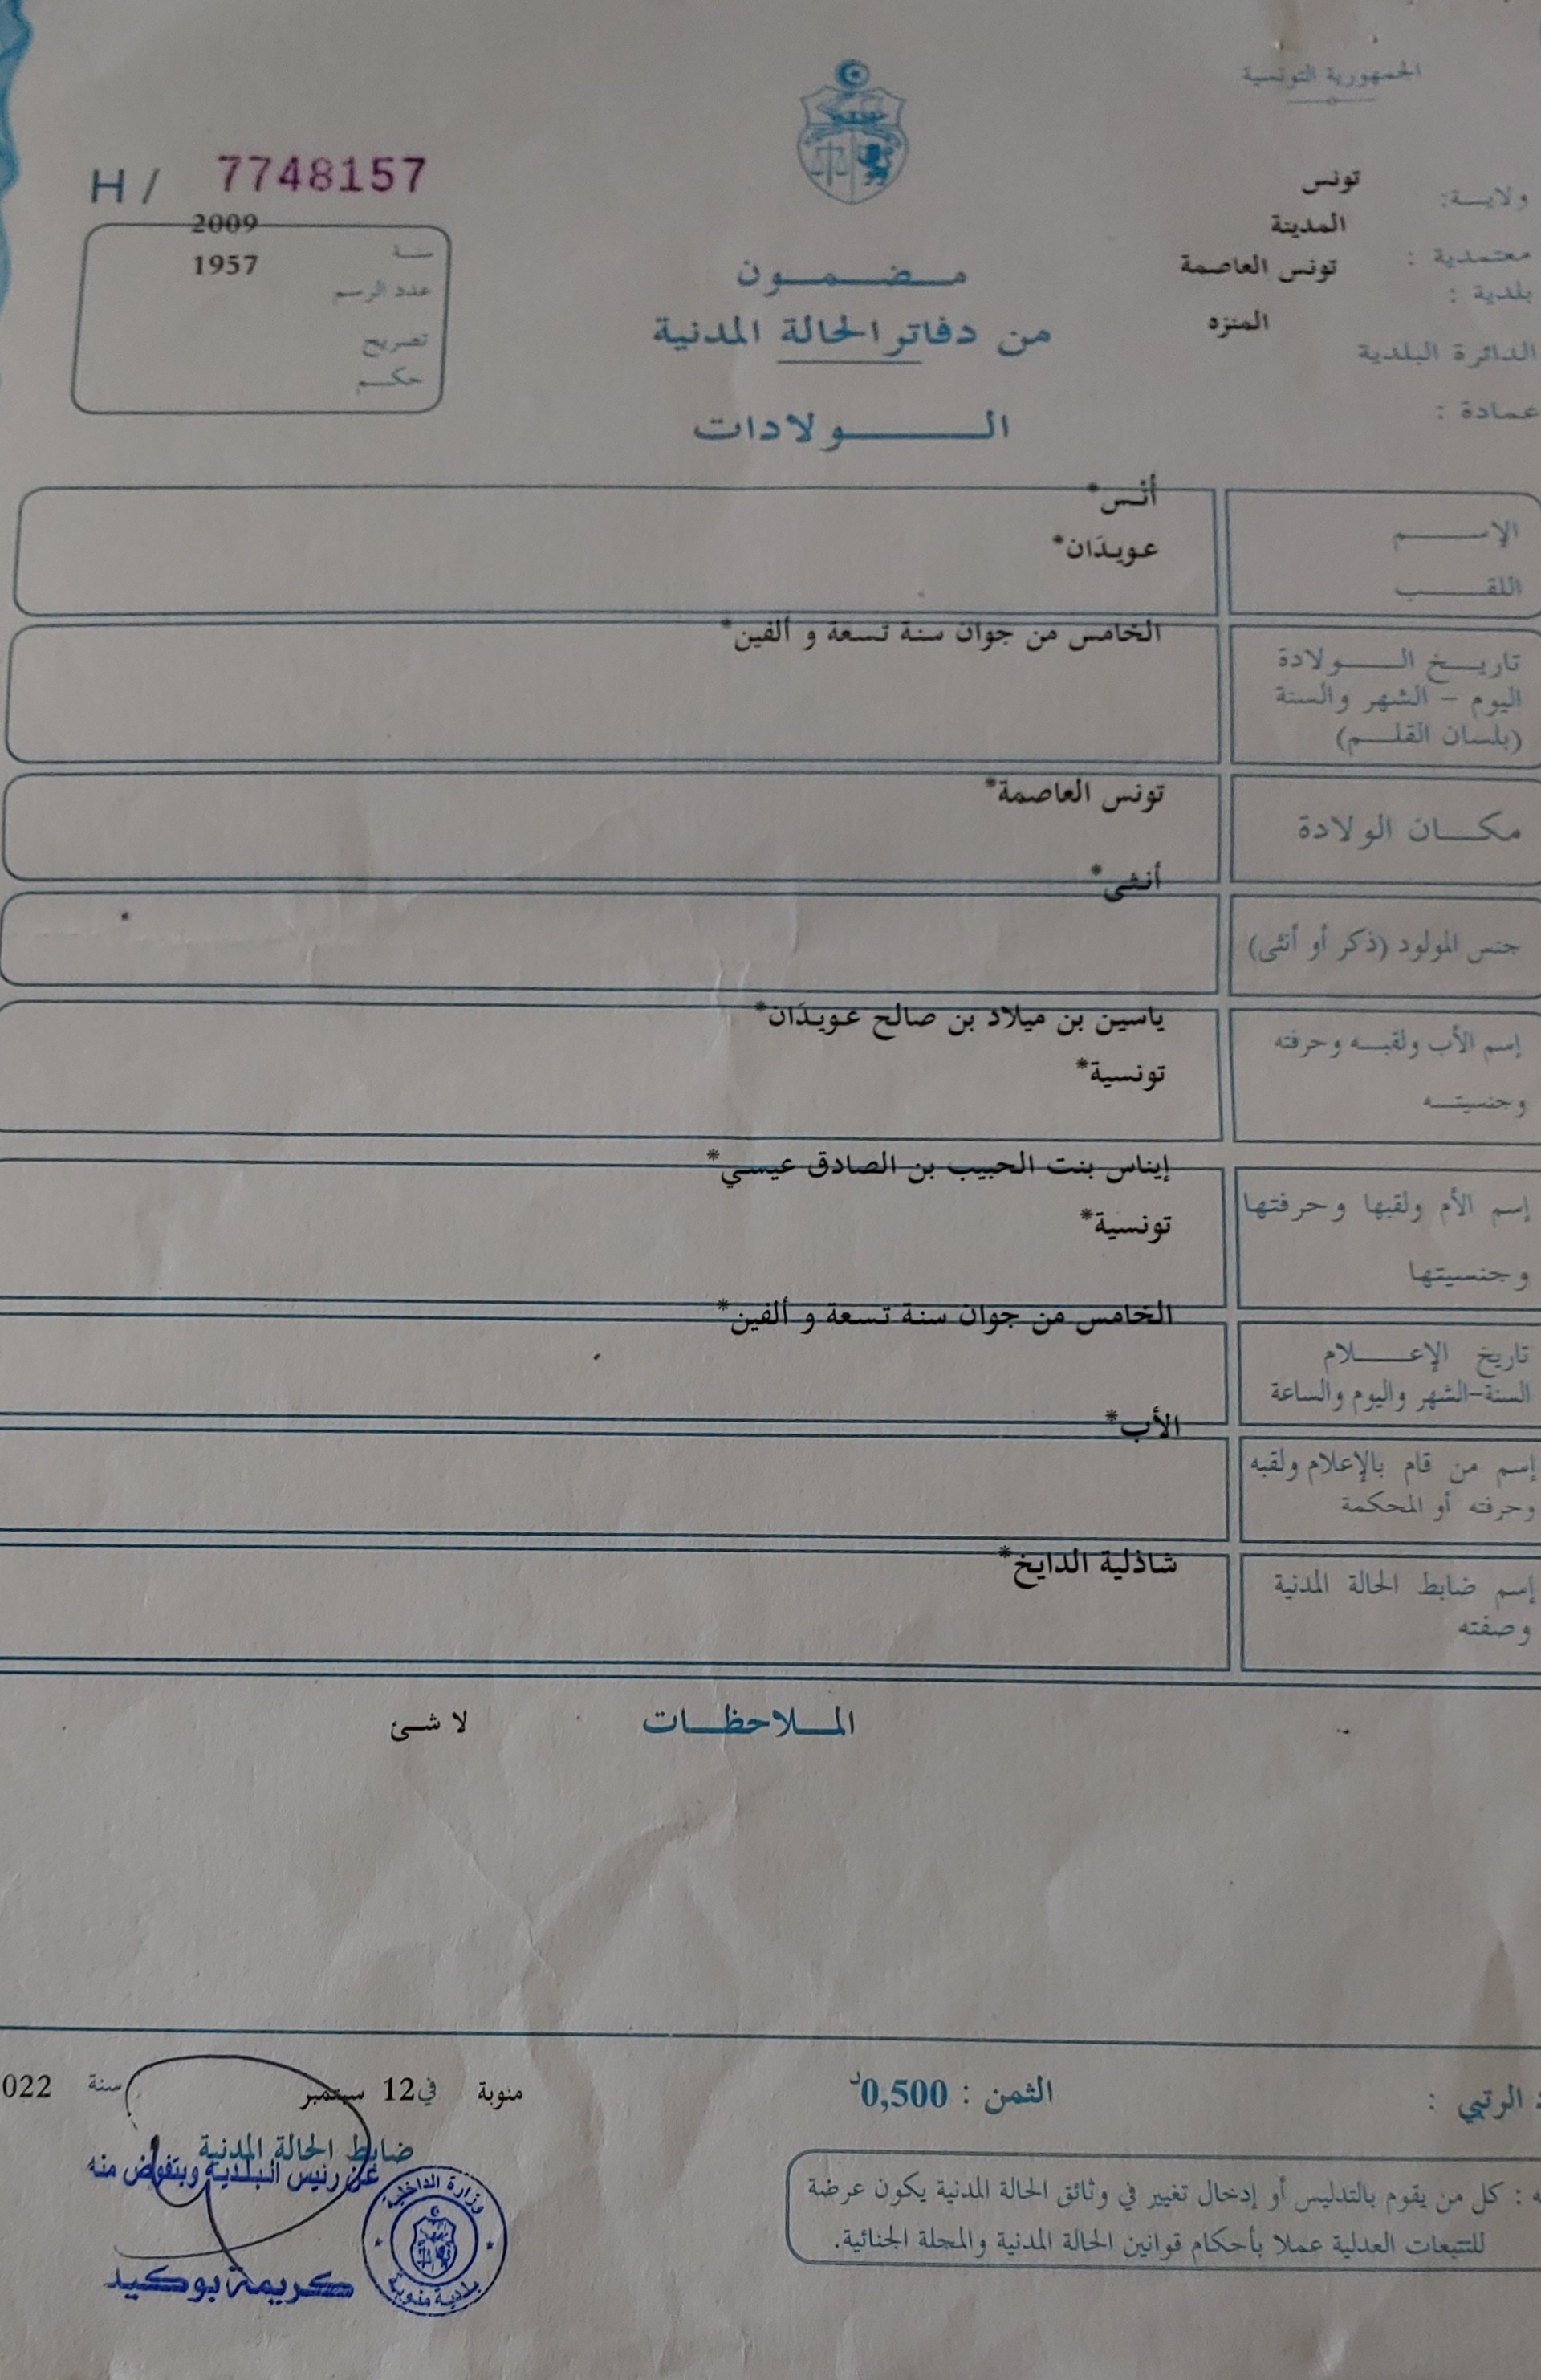 الجمهورية التونسية
ولاية: تونس
معتمدية : المدينة
بلدية : تونس العاصمة
الدائرة البلدية المنزه
عمادة :
H / 7748157
سنة 2009
عدد الرسم 1957
تصريح
حكم
مضمون
من دفاتر الحالة المدنية
الولادات
الإسم أنس*
اللقب عويدَان*
تاريخ الولادة
اليوم – الشهر والسنة
(بلسان القلم)
الخامس من جوان سنة تسعة و ألفين*
مكان الولادة تونس العاصمة*
جنس المولود (ذكر أو أنثى) أنثى*
إسم الأب ولقبه وحرفته
وجنسيته
ياسين بن ميلاد بن صالح عويدَان*
تونسية*
إسم الأم ولقبها وحرفتها
وجنسيتها
إيناس بنت الحبيب بن الصادق عيسي*
تونسية*
تاريخ الإعلام
السنة-الشهر واليوم والساعة
الخامس من جوان سنة تسعة و ألفين*
إسم من قام بالإعلام ولقبه
وحرفته أو المحكمة
الأب*
إسم ضابط الحالة المدنية
وصفته
شاذلية الدايخ*
الملاحظات لا شئ
الرتبي :
الثمن : 0,500د
منوبة في 12 سبتمبر سنة 022
ضابط الحالة المدنية
عن رئيس البلدية وبتفويض منه
كريمة بوكيد
وزارة الداخلية
بلدية منوبة
: كل من يقوم بالتدليس أو إدخال تغيير في وثائق الحالة المدنية يكون عرضة
للتتبعات العدلية عملا بأحكام قوانين الحالة المدنية والمجلة الجنائية.